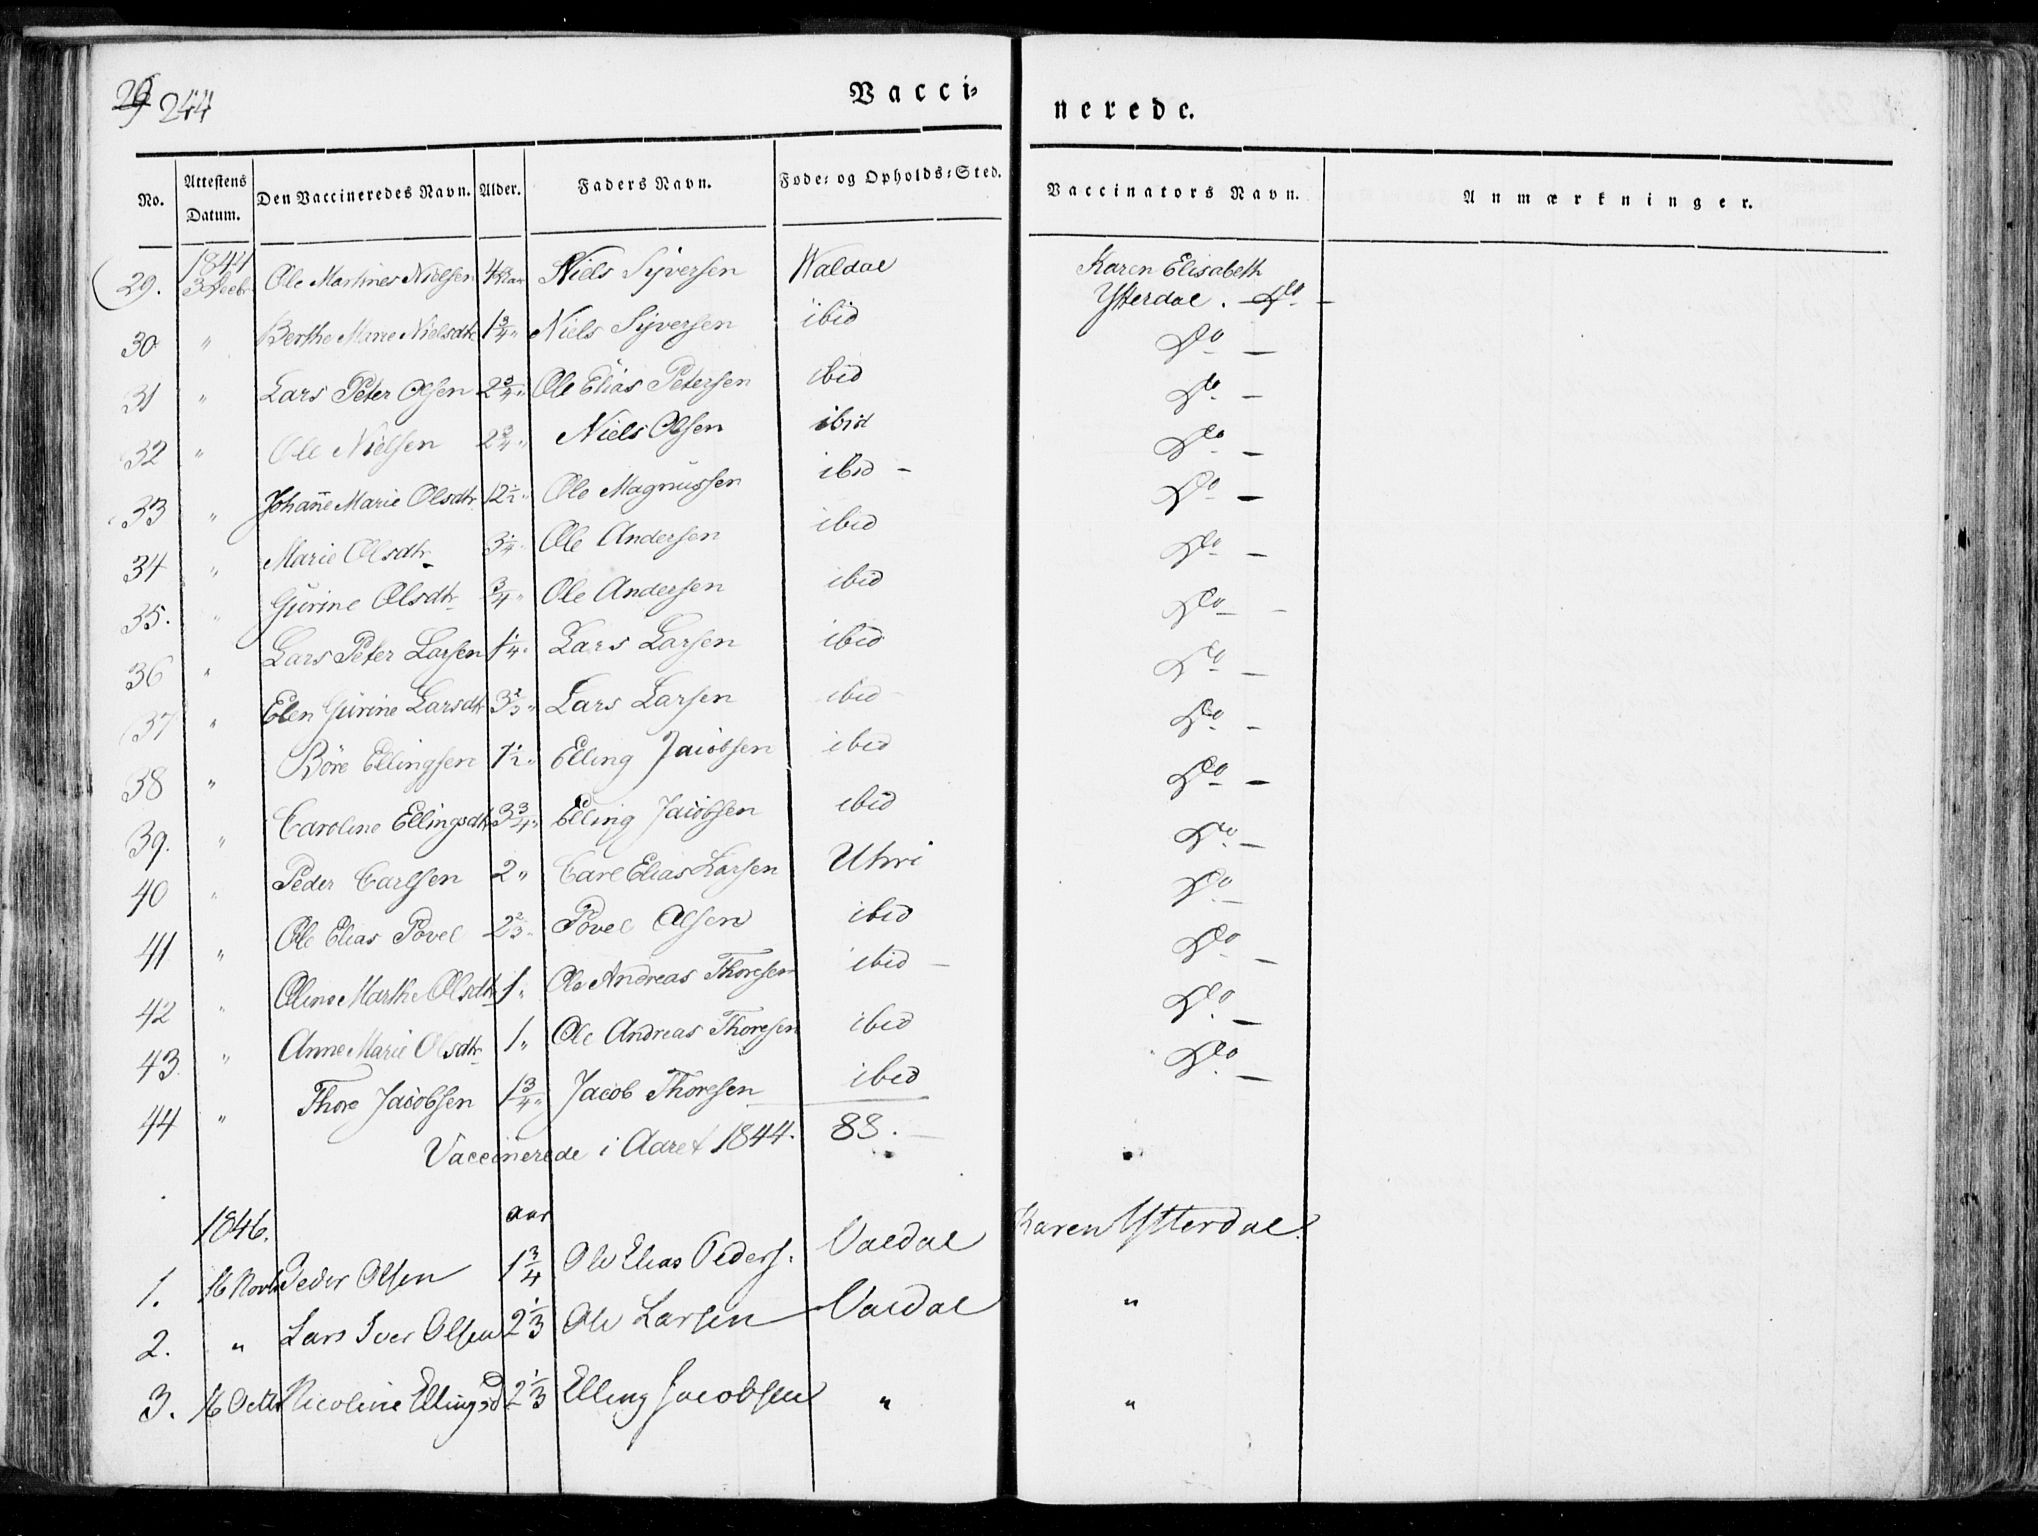 244
Vacci-
nerede.
No. Attestens Datum. Den Vaccineredes Navn. Alder. Faders Navn. Føde- og Opholds-Sted. Vaccinators Navn. Anmærkninger.
1844
29. Ole Martines Nielsen 4 Niels Syversen Waldal Karen Elisabeth
Ytterdal. Do -
30 " Berthe Marie Nielsdtr 1 3/4 " Niels Syversen ibid Do -
31 " Lars Peter Olsen 2 3/4 " Ole Elias Petersen ibid Do -
32 " Ole Nielsen 2 3/4 " Niels Olsen ibid Do -
33 " Johan̄e Marie Olsdtr. 12 1/2 " Ole Magnussen ibid - Do -
34 " Marie Olsdtr 3 1/4 " Ole Andersen ibid Do -
35. " Gurine Olsdtr 3/4 " Ole Andersen ibid Do -
36 " Lars Peter Larsen 1 1/4 " Lars Larsen ibid Do -
37 " Elen Gurine Larsdtr Lars Larsen ibid - Do -
38 " Böre Ellingsen 1 1/2 " Elling Jacobsen ibid Do -
39. " Caroline Ellingsdtr 3 3/4 " Elling Jacobsen ibid Do -
40 " Peder Carlsen 2 " Carl Elias Larsen Uhri Do -
41 " Ole Elias Povel 2 2/3 " Povel Olsen ibid Do -
42 " Oline Marthe Olsdtr 1 " Ole Andreas Thoresen ibid - Do -
43. " Anne Marie Olsdtr 1 " Ole Andreas Thoresen ibid Do -
44 " Thore Jacobsen 1 3/4 " Jacob Thoresen ibid
Vaccinerede i Aaret 1844. 88. - "
1846. aar
1. 16 Novb Peder Olsen 1 3/4 Ole Elias Peders. Valdal Karen Ytterdal.
2. " Lars Iver Olsen 2 1/3 Ole Larsen Valdal "
3. 16 Octb Nicoline Ellingsd 2 1/3 Elling Jacobsen " "